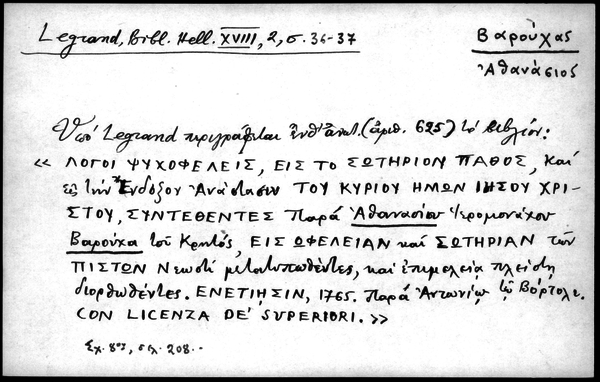 Legrand, Bibl. Hell. XVIII, 2, σ. 36-37
Βαρούχας
Ἀθανάσιος
Ὑπό Legrand περιγράφεται ἐνθ' ἀνωτ. (ἀριθ. 625) τό βιβλίον:
« ΛΟΓΟΙ ΨΥΧΟΦΕΛΕΙΣ, ΕΙΣ ΤΟ ΣΩΤΗΡΙΟΝ ΠΑΘΟΣ, καί
εἰς τήν Ἔνδοξον Ἀνάστασιν ΤΟΥ ΚΥΡΙΟΥ ΗΜΩΝ ΙΗΣΟΥ ΧΡΙ
ΣΤΟΥ, ΣΥΝΤΕΘΕΝΤΕΣ παρά Ἀθανασίου Ἱερομονάχου
Βαρούχα τοῦ Κρητός, ΕΙΣ ΩΦΕΛΕΙΑΝ καί ΣΩΤΗΡΙΑΝ τῶν
ΠΙΣΤΩΝ Νεωστί μετατυπωθέντες, καί ἐπιμελείᾳ πλείστῃ
διορθωθέντες. ΕΝΕΤΙΗΣΙΝ, 1765. παρά Ἀντωνίῳ τῷ Βόρτολι.
CON LICENZA DE' SUPERIORI. »
Σχ. 8ον, σελ. 208.-